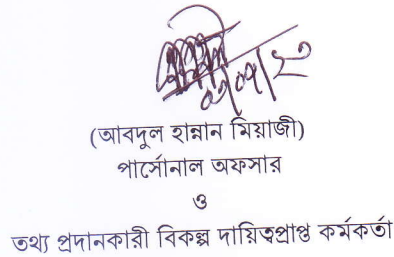 (আবদুল হান্নান মিয়াজী)
পার্সোনাল অফসার
ও
তথ্য প্রদানকারী বিকল্প দায়িত্বপ্রাপ্ত কর্মকর্তা